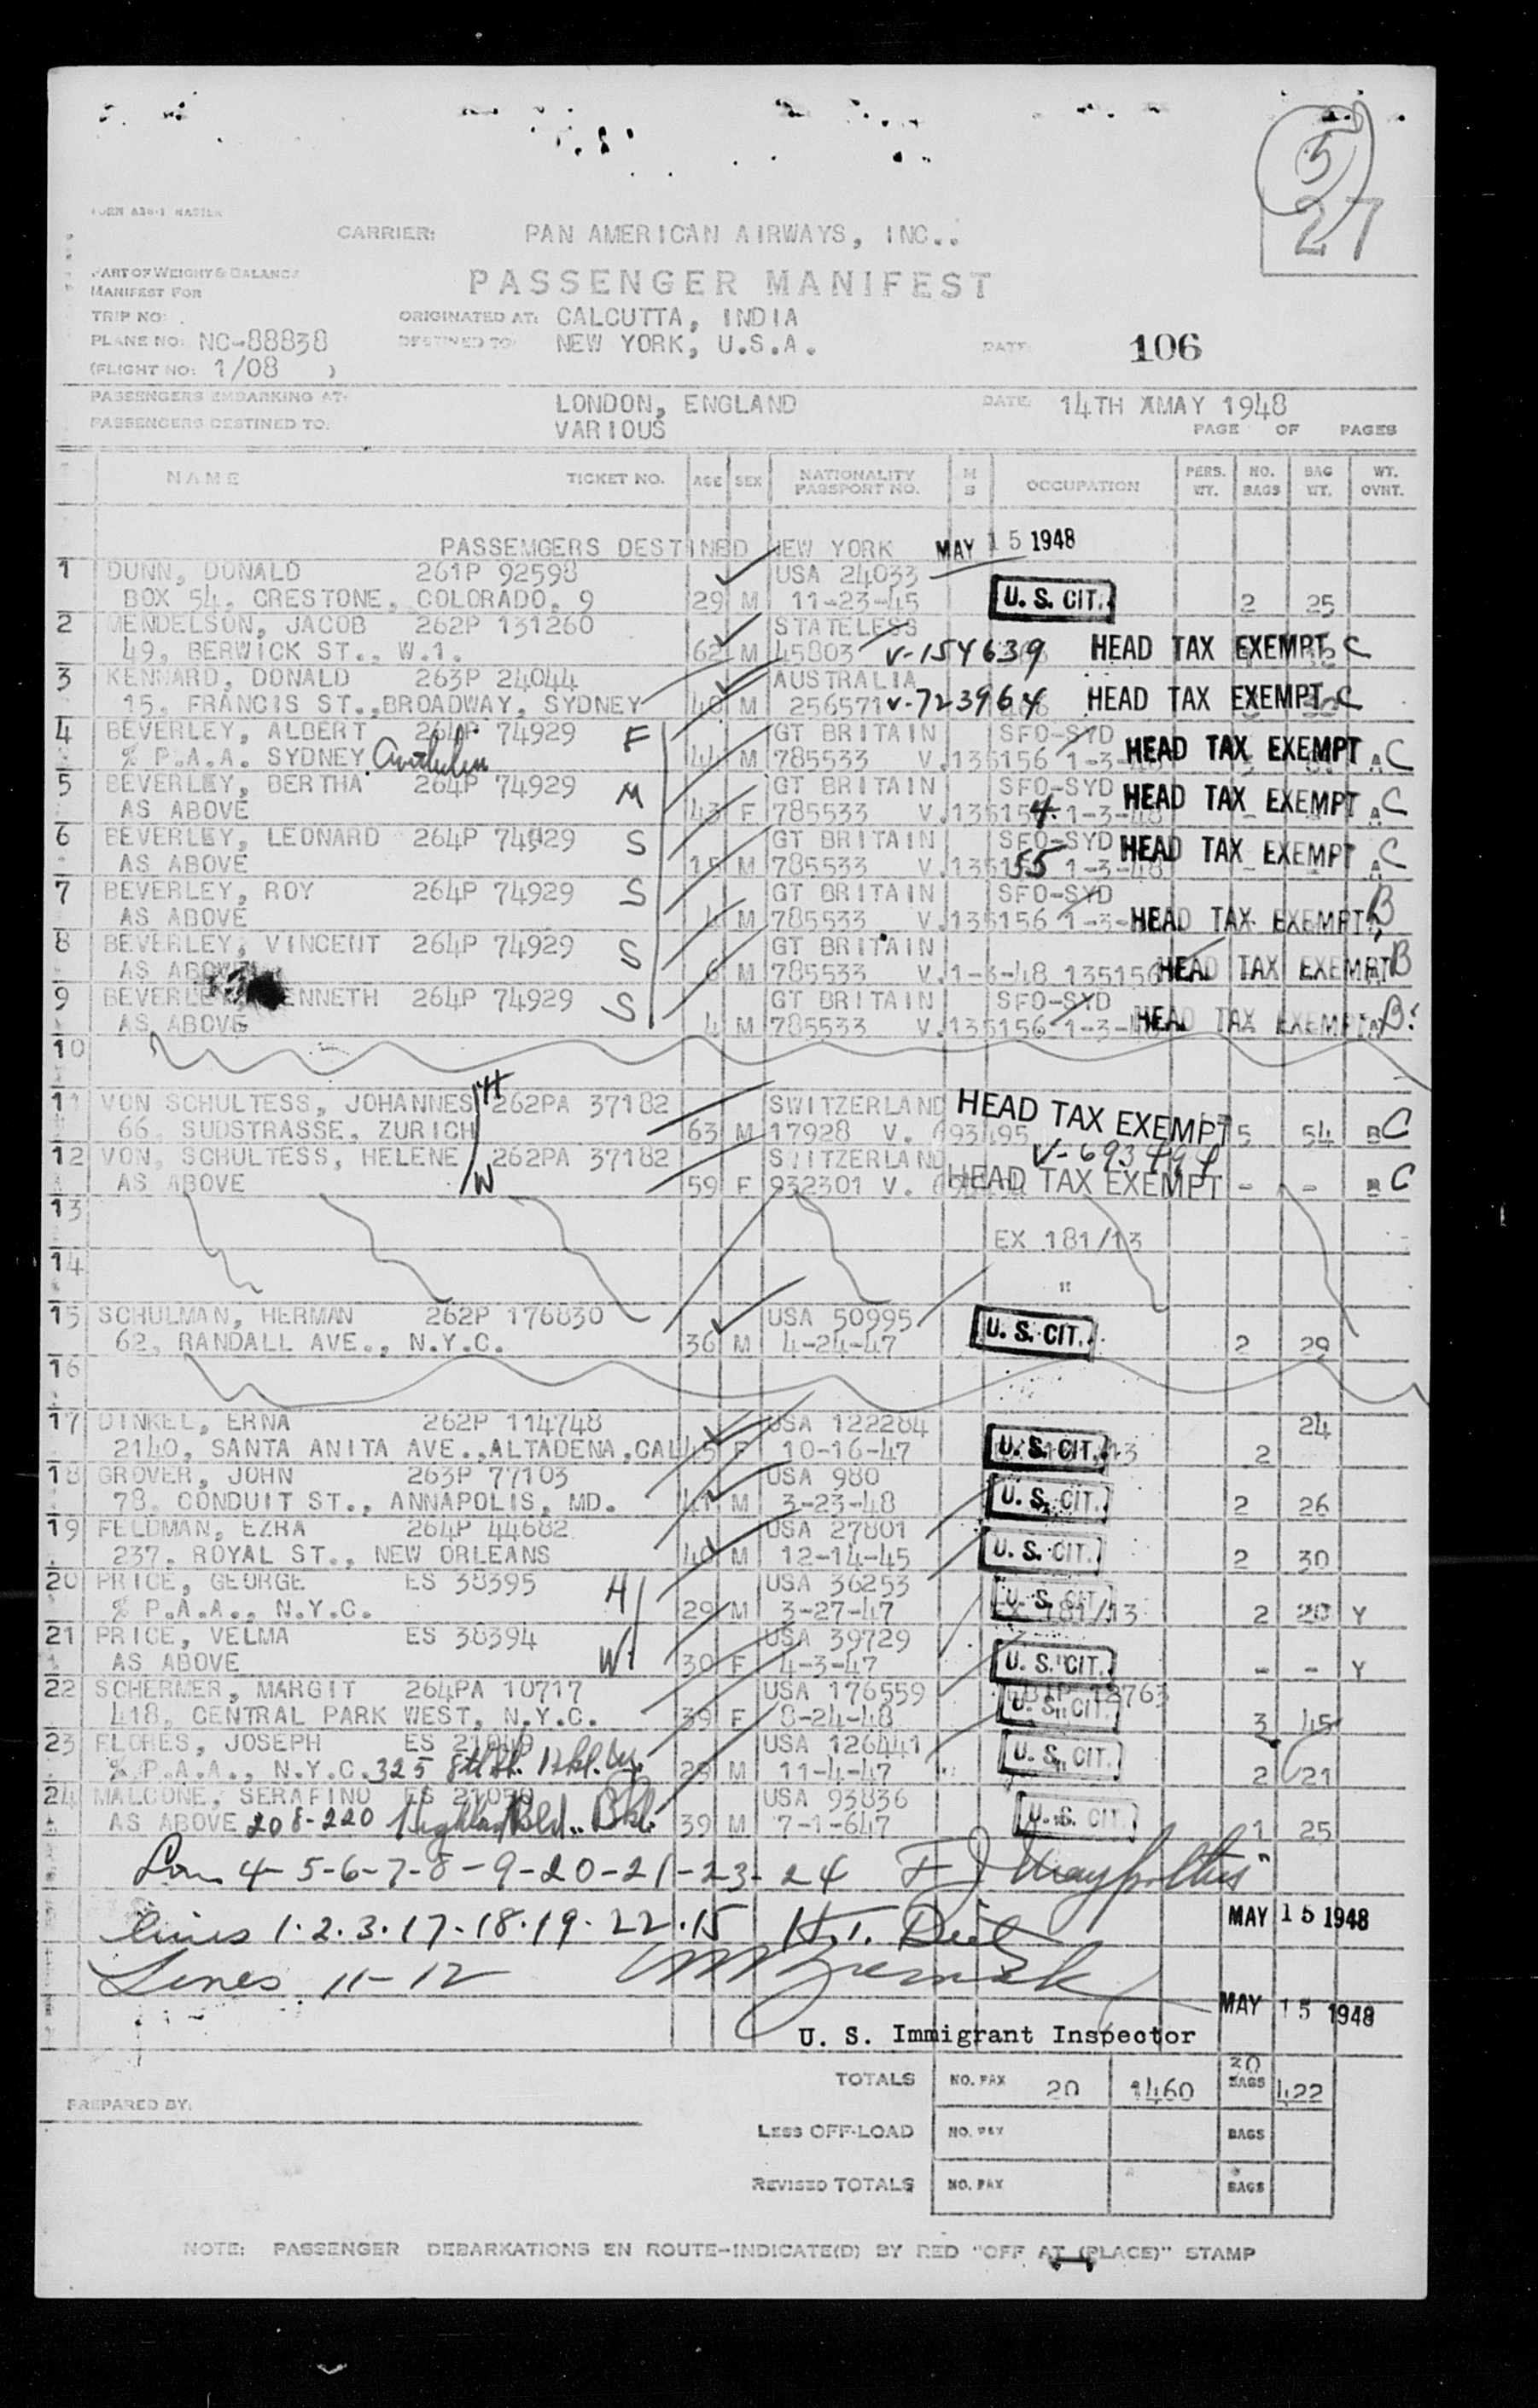 5
27
FORM A30-1 MASTER
CARRIER: PAN AMERICAN AIRWAYS, INC..
PART OF WEIGHT & BALANCE
MANIFEST FOR
PASSENGER MANIFEST
TRIP NO: ORIGINATED AT: CALCUTTA, INDIA
PLANE NO: NC-88838 DESTINED TO: NEW YORK, U.S.A. DATE: 106
(FLIGHT NO: 1/08 )
PASSENGERS EMBARKING AT: LONDON, ENGLAND DATE: 14TH XMAY 1948
PASSENGERS DESTINED TO: VARIOUS PAGE OF PAGES
NAME TICKET NO. AGE SEX NATIONALITY PASSPORT NO. M S OCCUPATION PERS. WT. NO. BAGS BAG WT. WT. OVHT.
PASSEMGERS DESTINED NEW YORK MAY 15 1948
1 DUNN, DONALD 261P 92598 USA 24033
BOX 54, CRESTONE, COLORADO, 9 29 M 11-23-45 U. S. CIT. 2 25
2 MENDELSON, JACOB 262P 131260 STATELESS
49, BERWICK ST., W.1. 62 M 45803 V-154639 HEAD TAX EXEMPT C
3 KENNARD, DONALD 263P 24044 AUSTRALIA
15, FRANCIS ST., BROADWAY, SYDNEY 40 M 256571 V-723964 HEAD TAX EXEMPT C
4 BEVERLEY, ALBERT 264P 74929 F GT BRITAIN SFO-SYD
% P.A.A. SYDNEY 44 M 785533 V.135156 1-3-48 HEAD TAX EXEMPT A C
5 BEVERLEY, BERTHA 264P 74929 M GT BRITAIN SFO-SYD
AS ABOVE 43 F 785533 V.135154 1-3-48 HEAD TAX EXEMPT A C
6 BEVERLEY, LEONARD 264P 74929 S GT BRITAIN SFO-SYD
AS ABOVE 15 M 785533 V.135155 1-3-48 HEAD TAX EXEMPT A C
7 BEVERLEY, ROY 264P 74929 S GT BRITAIN SFO-SYD
AS ABOVE 4 M 785533 V.135156 1-3- HEAD TAX EXEMPT B
8 BEVERLEY, VINCENT 264P 74929 S GT BRITAIN
AS ABOVE 6 M 785533 V.1-3-48 135156 HEAD TAX EXEMPT B
9 BEVERLEY, KENNETH 264P 74929 S GT BRITAIN SFO-SYD
AS ABOVE 4 M 785533 V.135156 1-3-48 HEAD TAX EXEMPT A B
10
11 VON SCHULTESS, JOHANNES H 262PA 37182 SWITZERLAND HEAD TAX EXEMPT
66, SUDSTRASSE, ZURICH 63 M 17928 V. 693495 5 54 B C
12 VON, SCHULTESS, HELENE 262PA 37182 SWITZERLAND V-693494
AS ABOVE W 59 F 932301 V. HEAD TAX EXEMPT - - B C
13
EX 181/13
14
"
15 SCHULMAN, HERMAN 262P 176830 USA 50995
62, RANDALL AVE., N.Y.C. 36 M 4-24-47 U. S. CIT. 2 29
16
17 DINKEL, ERNA 262P 114748 USA 122284 24
2140, SANTA ANITA AVE., ALTADENA, CAL 45 F 10-16-47 U. S. CIT. 13 2
18 GROVER, JOHN 263P 77103 USA 980
78, CONDUIT ST., ANNAPOLIS, MD. 41 M 3-23-48 U. S. CIT. 2 26
19 FELDMAN, EZRA 264P 44682 USA 27801
237, ROYAL ST., NEW ORLEANS 40 M 12-14-45 U. S. CIT. 2 30
20 PRICE, GEORGE ES 38395 H USA 36253 U. S. CIT.
% P.A.A., N.Y.C. 29 M 3-27-47 EX 181/13 2 20 Y
21 PRICE, VELMA ES 38394 USA 39729
AS ABOVE W 30 F 4-3-47 U. S. CIT. - - Y
22 SCHERMER, MARGIT 264PA 10717 USA 176559 12763
418, CENTRAL PARK WEST, N.Y.C. 39 F 8-24-48 U. S. CIT. 3 45
23 FLORES, JOSEPH ES 21049 USA 126441
% P.A.A., N.Y.C. 325 8th St. Bkl. Ny. 25 M 11-4-47 U. S. CIT. 2 21
24 MALCONE, SERAFINO ES 21050 USA 93836
AS ABOVE 208-220 Highland Bld.. Bkl. 39 M 7-1-647 U. S. CIT. 1 25
4-5-6-7-8-9-20-21-23-24
lines 1.2.3.17.18.19.22.15 MAY 15 1948
Lines 11-12
MAY 15 1948
U. S. Immigrant Inspector
TOTALS NO. PAX 20 1460 30 BAGS 422
PREPARED BY:
LESS OFF-LOAD NO. PAX BAGS
REVISED TOTALS NO. PAX BAGS
NOTE: PASSENGER DEBARKATIONS EN ROUTE-INDICATE(D) BY RED "OFF AT (PLACE)" STAMP